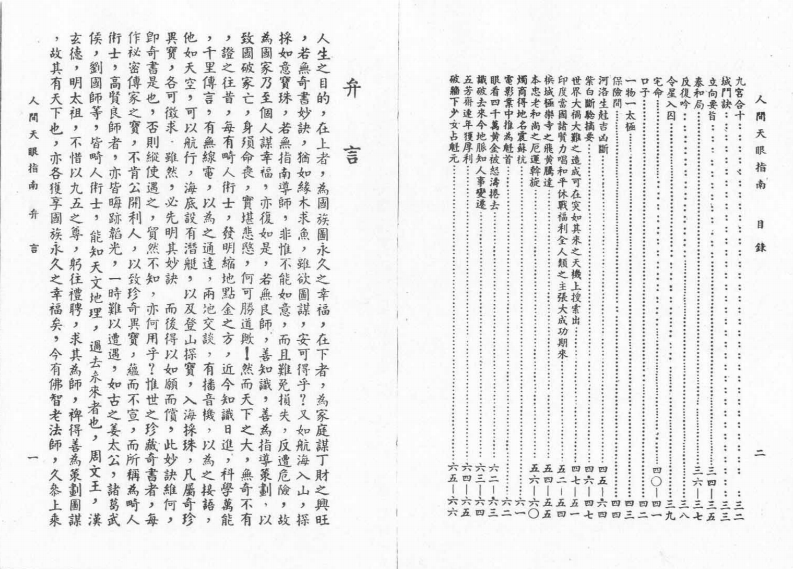 人間天眼指南　目錄　二
九宮合十……三二
城門訣……三三
立向要旨……三四—三五
泰和局……三六—三七
反復吟……三八
令星入囚……三九
宅命……四〇—四一
口子……四二
一物一太極……四三
保險問……四四
河洛生尅吉凶斷……四五
紫白斷驗摘要……四六—四七
世界大禍大難之造成可在突如其來之天機上搜索出……四七—五一
印度當國諸賢力唱和平休戰福利全人類之主張大成功期來……五二—
檳城極樂寺之飛黃騰達……五四—五五
本忠老和尚之厄運斡旋……五六—六〇
燭商得地名震蘇杭……六一
電影業中推為魁首……六二
眼看四千萬黃金被怒濤捲去……六二—六三
識破去來今地脈知人事變遷……六三—六四
五芳齋連年獲厚利……六四—六五
破牆下少女占魁元……六五—六六
弁言
人生之目的，在上者，為國族圖永久之幸福，在下者，為家庭謀丁財之興旺
，若無奇書妙訣，猶如緣木求魚，雖欲圖謀，安可得乎？又如航海入山，探
採如意寶珠，若無指南導師，非惟不能如意，而且難免損失，反遭危險，故
為國家乃至個人謀幸福，亦復如是，若無良師，善知識，善為指導策劃，以
致國破家亡，身殞命喪，實堪悲愍，何可勝道歟！然而天下之大，無奇不有
，證之往昔，每有畸人術士，發明縮地點金之方，近今知識日進，科學萬能
，千里傳言，有無線電，以為之通達，兩地交談，有播音機，以為之接語，
他如天空，可以航行，海底設有潛艇，以及登山探寶，入海採珠，凡屬奇珍
異寶，各可徵求，雖然，必先明其妙訣　而後得以如願而償，此妙訣維何，
即奇書是也，否則縱使遇之，貿然不知，亦何用乎？惟世之珍藏奇書者，每
作祕密傳家之寶，不肯公開利人，以致珍奇異寶，蘊而不宣，而所稱為畸人
術士，高賢良師者，亦皆晦跡韜光，一時難以遭遇，如古之姜太公，諸葛武
侯，劉國師等，皆畸人術士，能知天文地理，過去未來者也，周文王，漢
玄德，明太祖，不惜以九五之尊，躬往禮聘，求其為師，裨得善為策劃圖謀
，故其有天下也，亦各獲享國族永久之幸福矣，今有佛智老法師，久參上乘
人間天眼指南　弁言　一